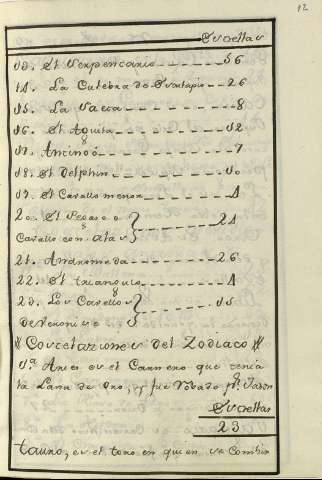 12
Strellas
13. El Serpentario 56
14. La Culebra de Esculapio 26
15. La Saeta 8
16. El Aguila 12
17. Antinoó 7
18. El Delphin 10
19. El Cavallo menor 4
20. El Pegaso o
Cavallo con alas 24
21. Andromeda 26
22. El triangulo 4
23. Los Cavellos 15
de Veronise
Costelaziones del Zodiaco
1.ª Aries es el Carnero que tenia
la Lana de Oro, y fue robado pr. Jason
Strellas
23
Tauro, es el toro en quien se combir